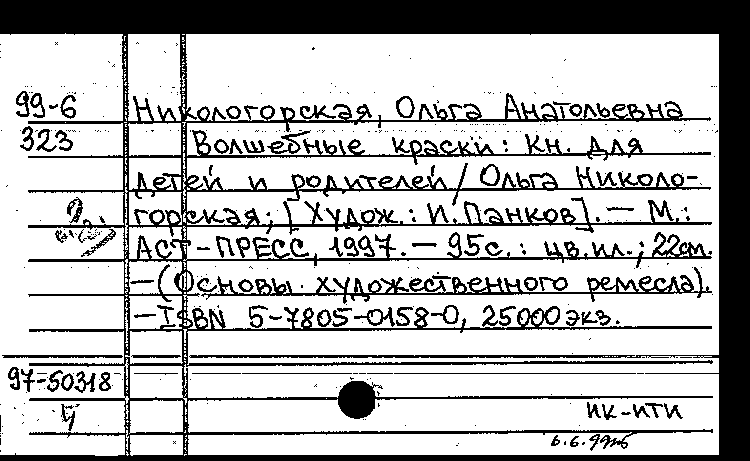 99-6 Никологорская, Ольга Анатольевна
323 Волшебные краски: Кн. для
детей и родителей / Ольга Николо-
горская; [Худож.: И. Панков]. — М.:
АСТ-ПРЕСС, 1997. — 95с.: цв.ил.; 22см.
—(Основы художественного ремесла).
—ISBN 5-7805-0158-0, 25000 экз.
97-50318
НК-ИТИ
6.6.99